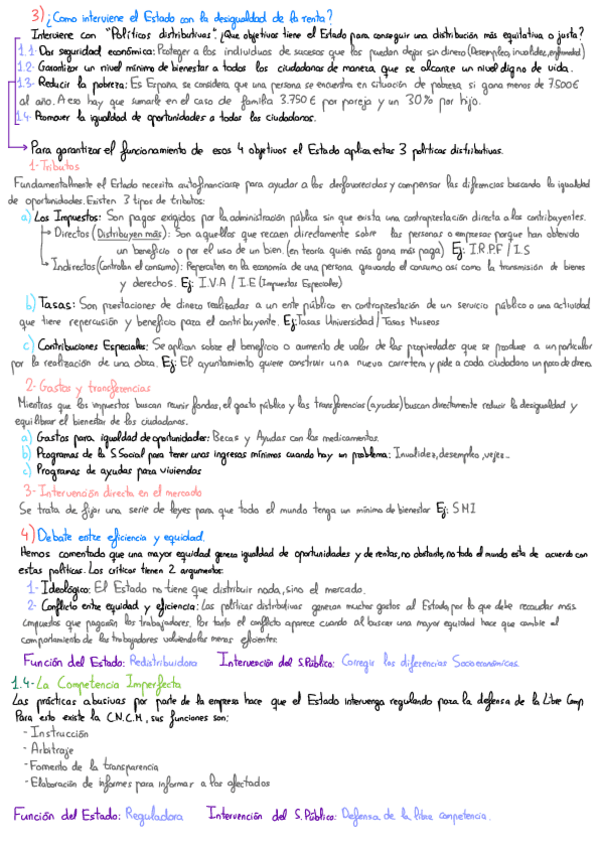 3) ¿Como interviene el Estado con la desigualdad de la renta?
Interviene con "Políticas distributivas". ¿Que objetivos tiene el Estado para conseguir una distribución más equitativa o justa?
1.1- Dar seguridad económica: Proteger a los individuos de sucesos que los puedan dejar sin dinero (Desempleo, invalidez, enfermedad)
1.2- Garantizar un nivel mínimo de bienestar a todos los ciudadanos de manera que se alcance un nivel digno de vida.
1.3- Reducir la pobreza: Es España, se considera que una persona se encuentra en situación de pobreza si gana menos de 7.500€
al año. A eso hay que sumarle en el caso de familia 3.750€ por pareja y un 30% por hijo.
1.4- Promover la igualdad de oportunidades a todos los ciudadanos.
Para garantizar el funcionamiento de esos 4 objetivos el Estado aplica estas 3 políticas distributivas.
1-Tributos
Fundamentalmente el Estado necesita autofinanciarse para ayudar a los desfavorecidos y compensar las diferencias buscando la igualdad
de oportunidades. Existen 3 tipos de tributos:
a) Los Impuestos: Son pagos exigidos por la administración pública sin que exista una contraprestación directa a los contribuyentes.
Directos (Distribuyen más): Son aquellos que recaen directamente sobre las personas o empresas porque han obtenido
un beneficio o por el uso de un bien. (en teoría quién más gana más paga) Ej: I.R.P.F / I.S
Indirectos (Controlan el consumo): Repercuten en la economía de una persona, gravando el consumo así como la transmisión de bienes
y derechos. Ej: I.V.A / I.E (Impuestos Especiales)
b) Tasas: Son prestaciones de dinero realizadas a un ente público en contraprestación de un servicio público o una actividad
que tiene repercusión y beneficio para el contribuyente. Ej: Tasas Universidad / Tasas Museos
c) Contribuciones Especiales: Se aplican sobre el beneficio o aumento de valor de las propiedades que se produce a un particular
por la realización de una obra. Ej: El ayuntamiento quiere construir una nueva carretera y pide a cada ciudadano un poco de dinero
2-Gastos y transferencias
Mientras que los impuestos buscan reunir fondos, el gasto público y las transferencias (ayudas) buscan directamente reducir la desigualdad y
equilibrar el bienestar de los ciudadanos.
a) Gastos para igualdad de oportunidades: Becas y Ayudas con los medicamentos.
b) Programas de la S.Social para tener unos ingresos mínimos cuando hay un problema: Invalidez, desempleo, vejez...
c) Programas de ayudas para viviendas
3-Intervención directa en el mercado
Se trata de fijar una serie de leyes para que todo el mundo tenga un mínimo de bienestar Ej: SMI
4) Debate entre eficiencia y equidad.
Hemos comentado que una mayor equidad genera igualdad de oportunidades y de rentas, no obstante, no todo el mundo esta de acuerdo con
estas políticas. Los críticos tienen 2 argumentos:
1- Ideológico: El Estado no tiene que distribuir nada, sino el mercado.
2- Conflicto entre equidad y eficiencia: Las políticas distributivas generan muchos gastos al Estado, por lo que debe recaudar más
impuestos que pagarán los trabajadores. Por tanto el conflicto aparece cuando al buscar una mayor equidad hace que cambie el
comportamiento de los trabajadores volviendolos menos eficientes.
Función del Estado: Redistribuidora Intervención del S.Público: Corregir las diferencias Socioeconómicas.
1.4-La Competencia Imperfecta
Las prácticas abusivas por parte de la empresa hace que el Estado intervenga regulando para la defensa de la Libre Comp
Para esto existe la C.N.C.M, sus funciones son:
- Instrucción
- Arbitraje
- Fomento de la transparencia
- Elaboración de informes para informar a los afectados
Función del Estado: Reguladora Intervención del S.Público: Defensa de la libre competencia.